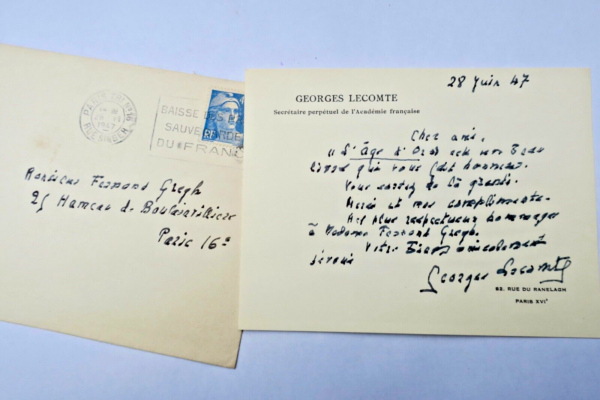 BAISSE DES
SAUVEGARDE
DU FRANC
Monsieur Fernand Gregh
25 Hameau de Boulainvilliers
Paris 16e
28 Juin 47
GEORGES LECOMTE
Secrétaire perpétuel de l'Académie française
Cher ami,
"L'Âge d'Or" est un beau
livre qui vous fait honneur.
Vous sortez de là grandi.
Merci et mes compliments.
Mes plus respectueux hommages
à Madame Fernand Gregh.
Votre bien amicalement
dévoué
Georges Lecomte
63, RUE DU RANELAGH
PARIS XVIe